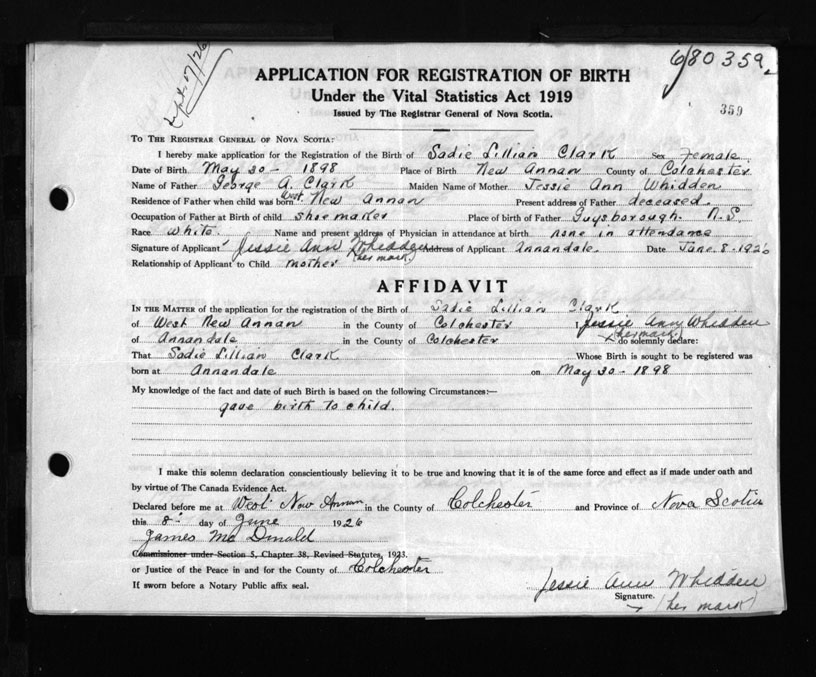 Sept. 17/26
680359.
APPLICATION FOR REGISTRATION OF BIRTH
Under the Vital Statistics Act 1919
359
Issued by The Registrar General of Nova Scotia.
TO THE REGISTRAR GENERAL OF NOVA SCOTIA:
I hereby make application for the Registration of the Birth of Sadie Lillian Clark Sex Female
Date of Birth May 30 - 1898 Place of Birth New Annan County of Colchester
Name of Father George A. Clark Maiden Name of Mother Jessie Ann Whidden
Residence of Father when child was born West New Annan Present address of Father deceased.
Occupation of Father at Birth of child shoemaker Place of birth of Father Guysborough. N.S.
Race White. Name and present address of Physician in attendance at birth none in attendance
Signature of Applicant Jessie Ann Whidden (her mark) Address of Applicant Annandale. Date June. 8 - 1926
Relationship of Applicant to Child mother
AFFIDAVIT
IN THE MATTER of the application for the registration of the Birth of Sadie Lillian Clark
of West New Annan in the County of Colchester I Jessie Ann Whidden
of Annandale in the County of Colchester (her mark) do solemnly declare:
That Sadie Lillian Clark Whose Birth is sought to be registered was
born at Annandale on May 30 - 1898
My knowledge of the fact and date of such Birth is based on the following Circumstances:—
gave birth to child.
I make this solemn declaration conscientiously believing it to be true and knowing that it is of the same force and effect as if made under oath and
by virtue of The Canada Evidence Act.
Declared before me at West New Annan in the County of Colchester and Province of Nova Scotia
this 8 day of June 1926
James Mc Donald
Commissioner under Section 5, Chapter 38, Revised Statutes, 1923.
or Justice of the Peace in and for the County of Colchester
If sworn before a Notary Public affix seal.
Jessie Ann Whidden
Signature.
(her mark)